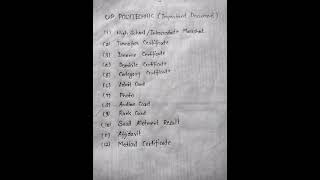 UP POLYTECHNIC (Important Document)
(1) High School / Intermediate Marksheet
(2) Transfer Certificate
(3) Income Certificate
(4) Domicile Certificate
(5) Category Certificate
(6) Admit Card
(7) Photo
(8) Aadhar Card
(9) Rank Card
(10) Seat Allotment Result
(11) Affidavit
(12) Medical Certificate